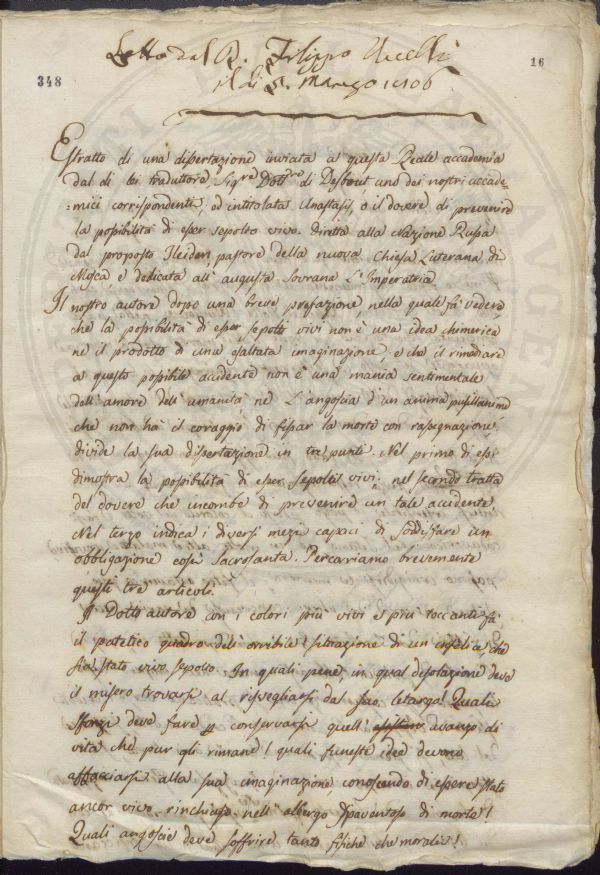 Letto dal R. Filippo Uccelli
il dì 5. Marzo 1806
348
16
Estratto di una dissertazione inviata a questa Reale accademia
dal di lei traduttore Sigre Dottre di Desbout uno dei nostri accade=
=mici corrispondenti, ed intitolata Anastasis, o il dovere di prevenire
la possibilità di esser sepolto vivo. diretta alla Nazione Russa
dal proposto Heideri pastore della nuova Chiesa Luterana di
Mosca, e dedicata all' augusta Sovrana l'Imperatria
Il nostro autore dopo una breve prefazione, nella quale fà vedere
che la possibilità di esser sepolti vivi non è una idea chimerica
nè il prodotto di una esaltata imaginazione, e che il rimediare
a questo possibile accidente non è una mania sentimentale
dell' amore dell' umanità nè l'angoscia d'un anima pusillanime
che non ha il coraggio di fissar la morte con rasegnazione
divide la sua dissertazione in tre punti. Nel primo di essi
dimostra la possibilità di esser sepolti vivi: nel secondo tratta
del dovere che incombe di prevenire un tale accidente
Nel terzo indica i diversi mezi capaci di sodisfare un
obbligazione così sacrosanta. Percorriamo brevemente
questi tre articoli.
Il Dotto autore con i colori più vivi e più toccanti fà
il patetico quadro dell' orribile situazione di un infelice che
sia stato vivo sepolto. In quali pene, in qual desolazione deve
il misero trovarsi al risvegliarsi dal suo letargo! Quali
sforzi deve fare p conservarsi quell' avanzo di
vita che pur gli rimane! quali funeste idee devono
affacciarsi alla sua imaginazione conoscendo di essere stato
ancor vivo rinchiuso nell' albergo spaventoso di morte!
Quali angoscie deve soffrire tanto fisiche che morali!